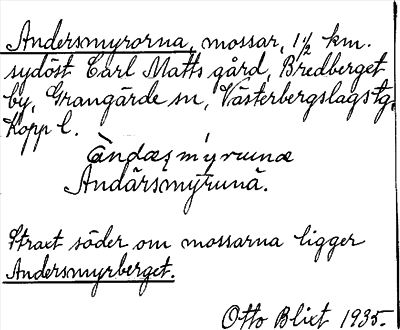 Andersmyrorna, mossar, 1½ km.
sydöst Carl Matts gård, Bredberget
by, Grangärde sn, Västerbergslags tg,
Kopp l.
Andärsmỳrunà.
Straxt söder om mossarna ligger
Andersmyrberget.
Otto Blixt 1935.